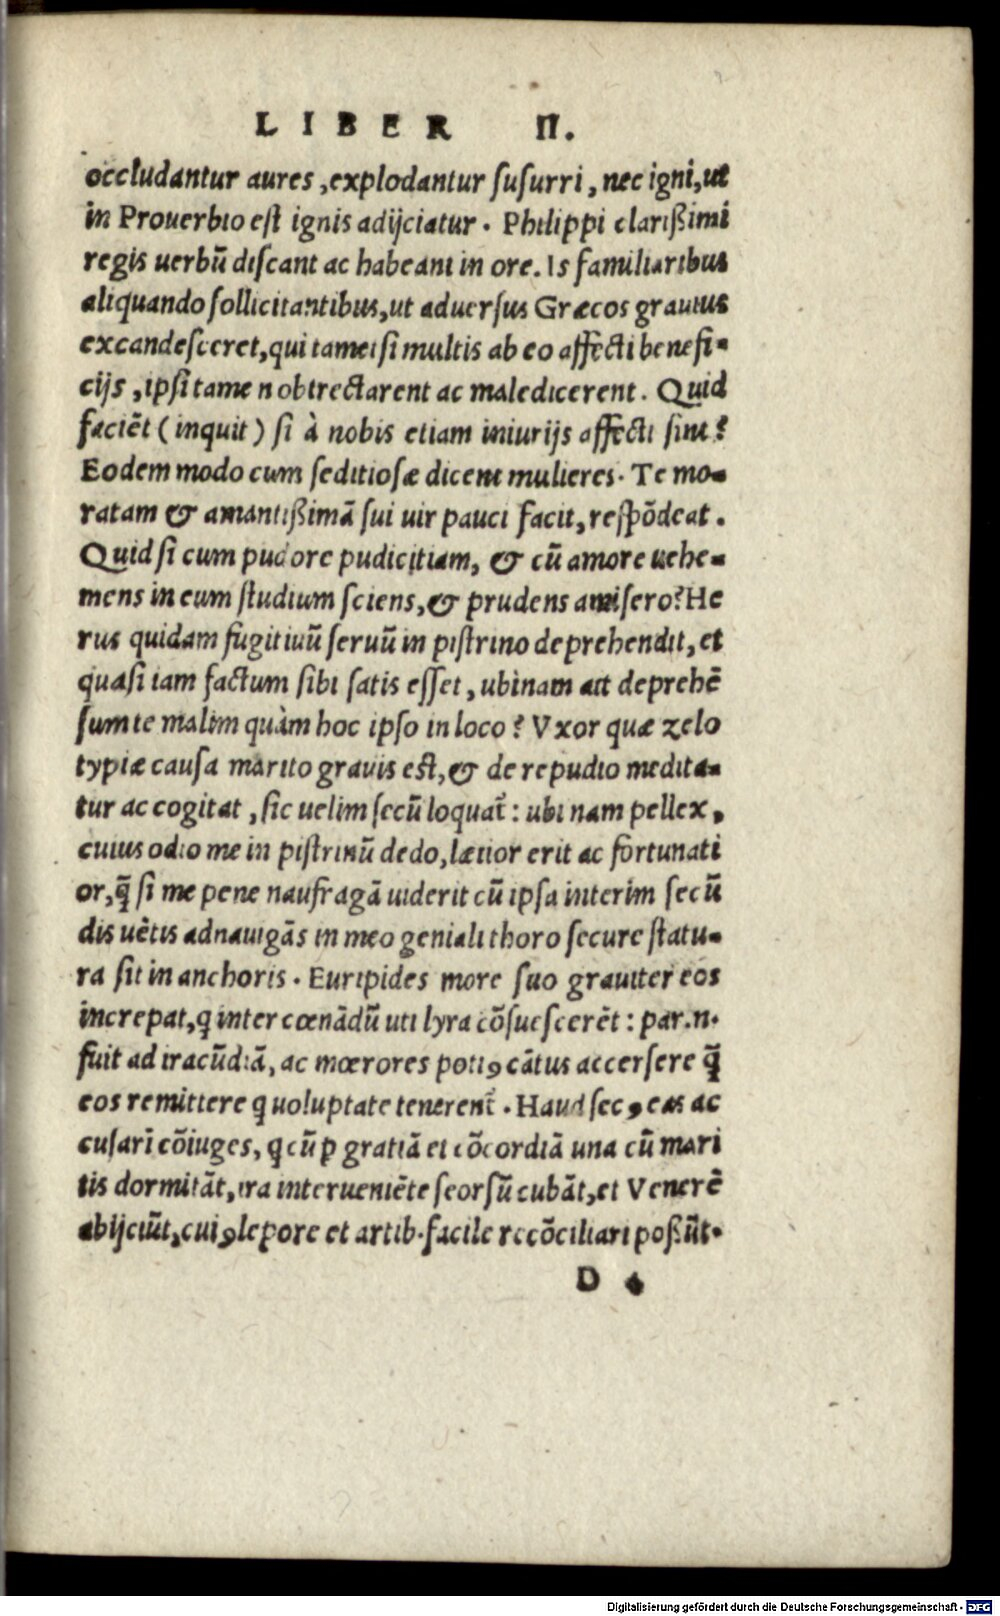 LIBER II.
occludantur aures, explodantur susurri, nec igni, ut
in Prouerbio est ignis adijciatur. Philippi clarißimi
regis uerbũ discant ac habeant in ore. Is familiaribus
aliquando sollicitantibus, ut aduersus Græcos grauius
excandesceret, qui tametsi multis ab eo affecti benefi-
cijs, ipsi tamen obtrectarent ac maledicerent. Quid
faciẽt (inquit) si à nobis etiam iniurijs affecti sint?
Eodem modo cum seditiosæ dicent mulieres. Te mo-
ratam & amantißimã sui uir pauci facit, respõdeat.
Quid si cum pudore pudicitiam, & cũ amore uehe-
mens in eum studium sciens, & prudens amisero? He
rus quidam fugitiuũ seruũ in pistrino deprehendit, et
quasi iam factum sibi satis esset, ubinam ait deprehẽ
sum te malim quàm hoc ipso in loco? Vxor quæ zelo
typiæ causa marito grauis est, & de repudio medita-
tur ac cogitat, sic uelim secũ loquat̃: ubi nam pellex,
cuius odio me in pistrinũ dedo, lætior erit ac fortunati
or, q̃ si me pene naufragã uiderit cũ ipsa interim secũ
dis uẽtis adnauigãs in meo geniali thoro secure statu-
ra sit in anchoris. Euripides more suo grauiter eos
increpat, q inter cœnãdũ uti lyra cõsuescerẽt: par.n.
fuit ad iracũdiã, ac mœrores potiꝰ cãtus accersere q̃
eos remittere q uoluptate tenerent̃. Haud secꝰ eas ac
cusari cõiuges, q cũ p gratiã et cõcordiã una cũ mari
tis dormitãt, ira interueniẽte seorsũ cubãt, et Venerẽ
abijciũt, cuiꝰ lepore et artib. facile recõciliari poßũt.
D 4
Digitalisierung gefördert durch die Deutsche Forschungsgemeinschaft - DFG